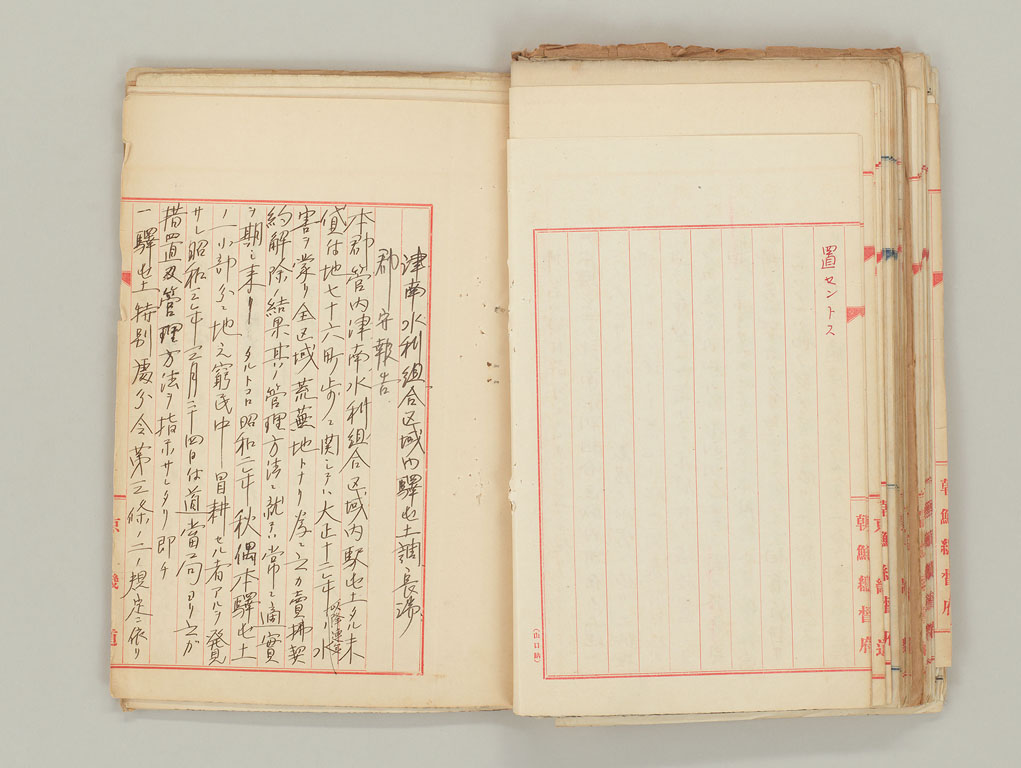 置セントス
朝鮮總督府
(山口納)
津南水利組合区域内驛屯土調
郡守報告
本郡管内津南水利組合区域内駅屯土タル未
貸付地七十六町歩ニ関シテハ大正十二年以降連年ノ水
害ヲ蒙リ全区域荒蕪地トナリ 之カ賣拂契
約解除結果其ノ管理方法ニ就テハ常ニ適實
ヲ期シ来リシタルトコロ昭和二年秋偶本驛屯土
ノ一小部分ニ地元窮民中冒耕セル者アルヲ発見
サレ昭和三年三月二十四日付道當局ヨリ之カ
措置及管理方法ヲ指示サレタリ即チ
一驛屯土特別處分令第三條ノ二ノ規定ニ依リ
京畿道